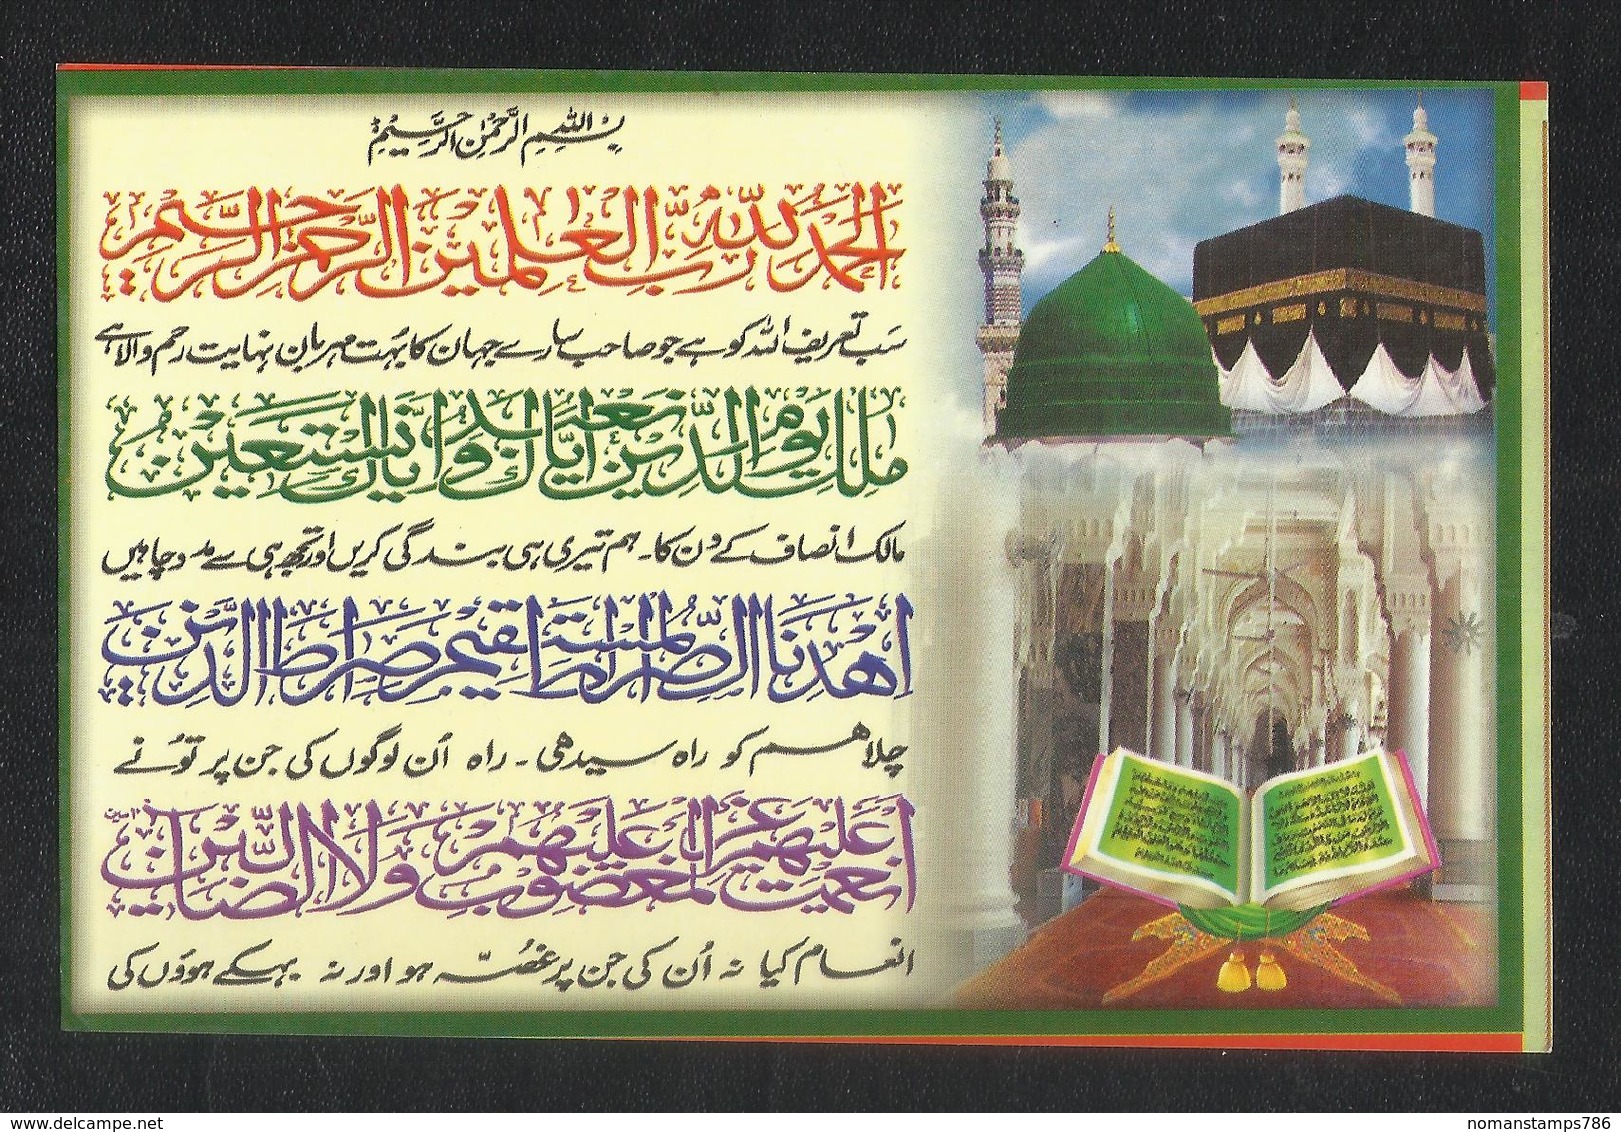 بِسْمِ اللّٰهِ الرَّحْمٰنِ الرَّحِيْمِ
الحمد للّٰه ربّ العٰلمين الرّحمٰن الرّحيم
سَب تعریف اللہ کو ہے جو صاحب سارے جہان کا بہُت مہربان نہایت رحم والا ہے
مٰلك يوم الدّين ايّاك نعبد و ايّاك نستعين
مالک انصاف کے دن کا۔ ہم تیری ہی بندگی کریں اور تجھ ہی سے مدد چاہیں
اهدنا الصّراط المستقيم صراط الّذين
چلا ہم کو راہ سیدھی ۔ راہ اُن لوگوں کی جن پر تُو نے
انعمت عليهم غير المغضوب عليهم ولا الضّالّين
انعام کیا نہ اُن کی جن پر غصّہ ہو اور نہ بہکے ہوؤں کی
nomanstamps786